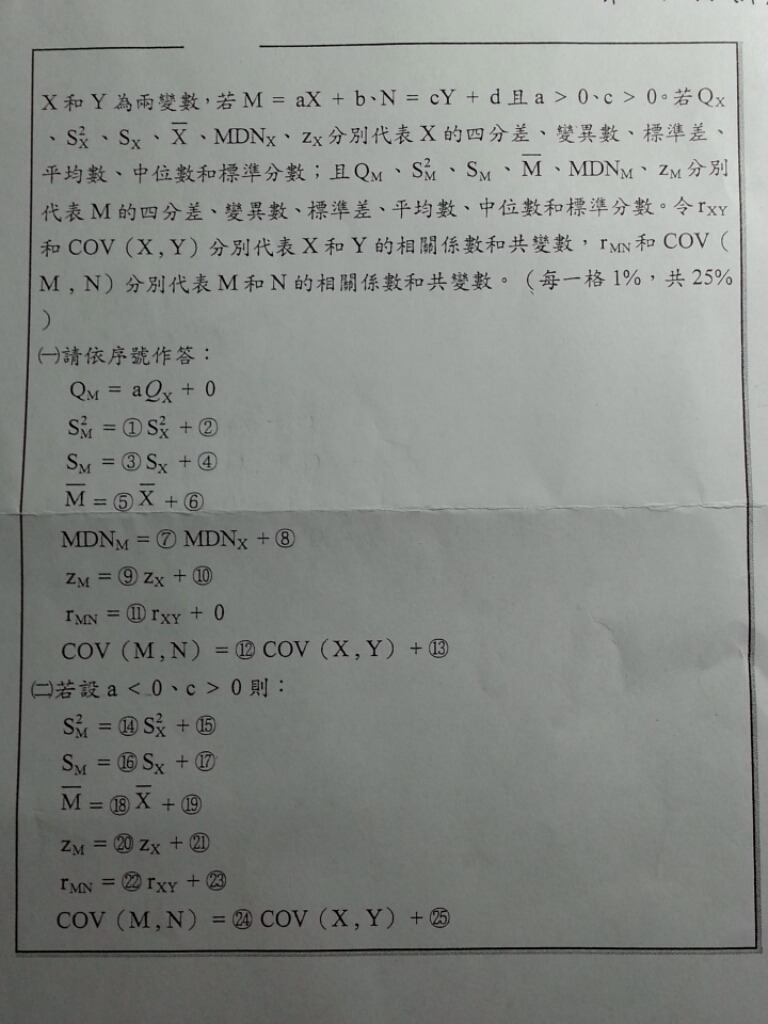 X 和 Y 為兩變數，若 M = aX + b、N = cY + d 且 a > 0、c > 0。若 Qₓ
、S²ₓ、Sₓ、X̄、MDNₓ、zₓ分別代表 X 的四分差、變異數、標準差、
平均數、中位數和標準分數；且 Q_M、S²_M、S_M、M̄、MDN_M、z_M 分別
代表 M 的四分差、變異數、標準差、平均數、中位數和標準分數。令 r_XY
和 COV（X , Y）分別代表 X 和 Y 的相關係數和共變數，r_MN 和 COV（
M , N）分別代表 M 和 N 的相關係數和共變數。（每一格 1%，共 25%
）
㈠請依序號作答：
Q_M = aQ_X + 0
S²_M = ① S²_X + ②
S_M = ③ S_X + ④
M̄ = ⑤ X̄ + ⑥
MDN_M = ⑦ MDN_X + ⑧
z_M = ⑨ z_X + ⑩
r_MN = ⑪ r_XY + 0
COV（M , N）= ⑫ COV（X , Y）+ ⑬
㈡若設 a < 0、c > 0 則：
S²_M = ⑭ S²_X + ⑮
S_M = ⑯ S_X + ⑰
M̄ = ⑱ X̄ + ⑲
z_M = ⑳ z_X + ㉑
r_MN = ㉒ r_XY + ㉓
COV（M , N）= ㉔ COV（X , Y）+ ㉕